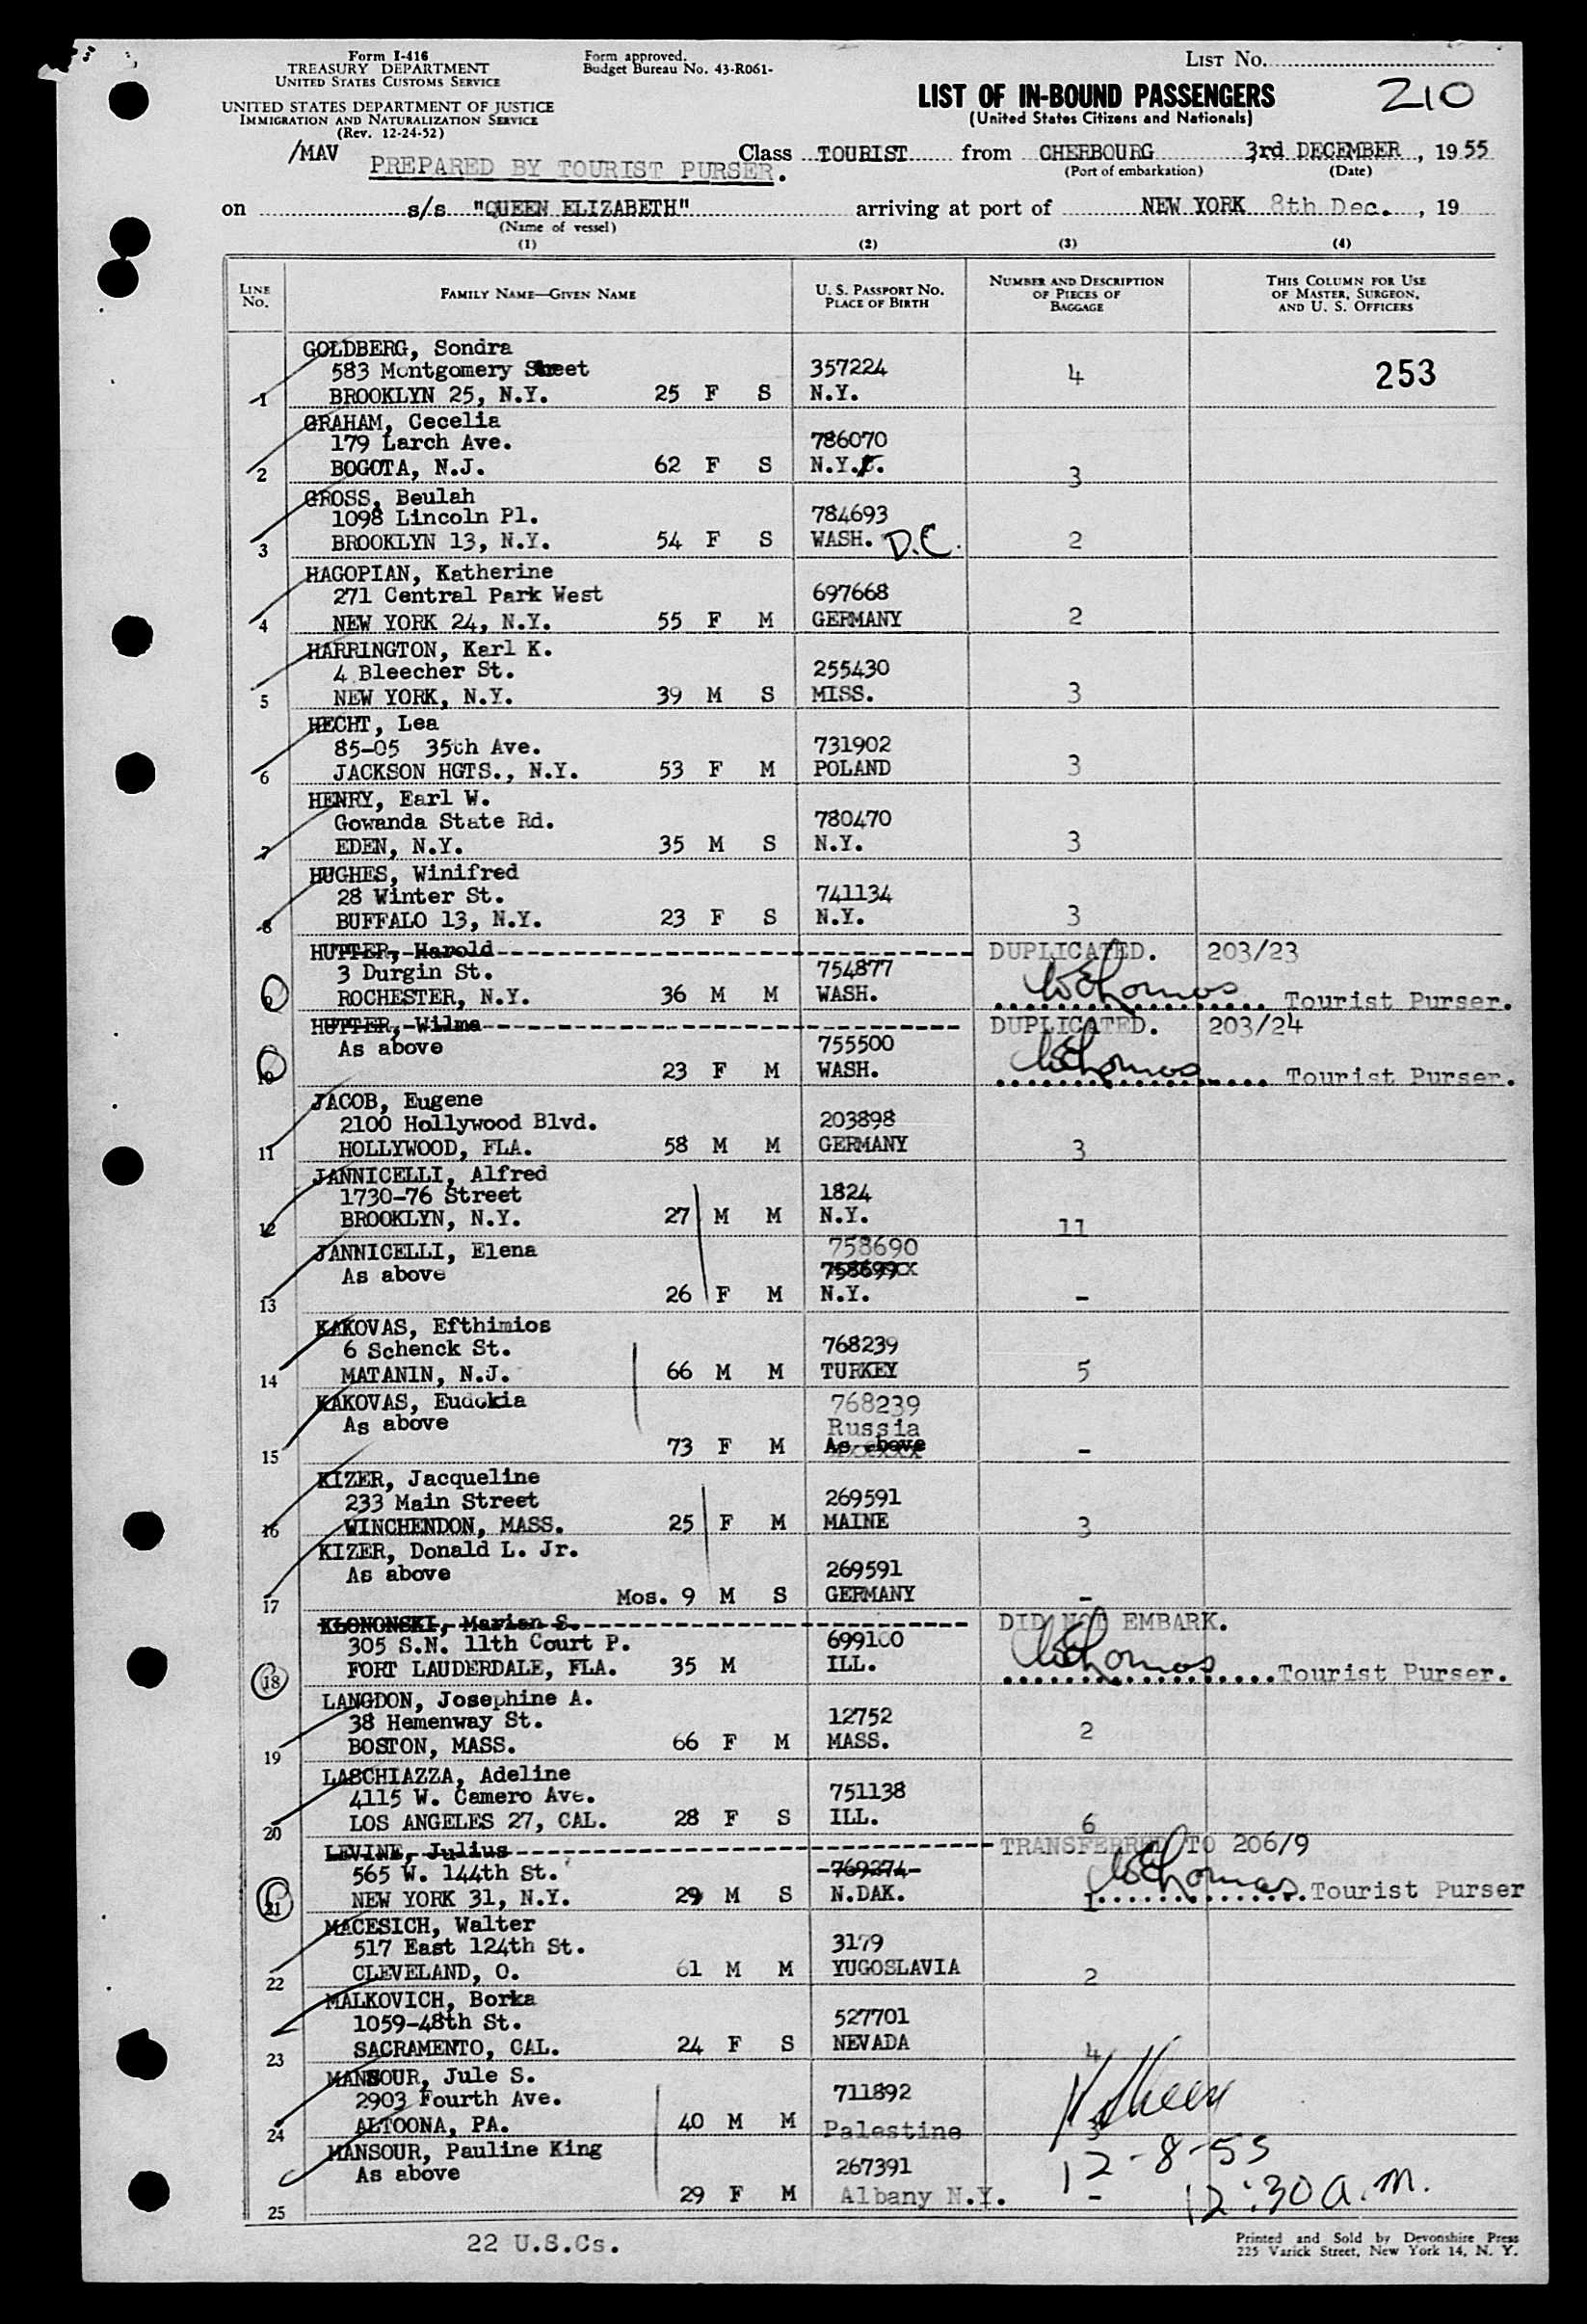 Form I-416
TREASURY DEPARTMENT
UNITED STATES CUSTOMS SERVICE
UNITED STATES DEPARTMENT OF JUSTICE
IMMIGRATION AND NATURALIZATION SERVICE
(Rev. 12-24-52)
Form approved.
Budget Bureau No. 43-R061-
LIST No.
LIST OF IN-BOUND PASSENGERS
(United States Citizens and Nationals)
210
/MAV
PREPARED BY TOURIST PURSER.
Class TOURIST from CHERBOURG 3rd DECEMBER, 1955
(Port of embarkation) (Date)
on s/s "QUEEN ELIZABETH" arriving at port of NEW YORK 8th Dec., 19
(Name of vessel)
(1) (2) (3) (4)
LINE No. FAMILY NAME—GIVEN NAME U. S. PASSPORT No. PLACE OF BIRTH NUMBER AND DESCRIPTION OF PIECES OF BAGGAGE THIS COLUMN FOR USE OF MASTER, SURGEON, AND U. S. OFFICERS
GOLDBERG, Sondra
583 Montgomery Street 357224 4 253
1 BROOKLYN 25, N.Y. 25 F S N.Y.
GRAHAM, Cecelia
179 Larch Ave. 786070
2 BOGOTA, N.J. 62 F S N.Y. 3
GROSS, Beulah
1098 Lincoln Pl. 784693
3 BROOKLYN 13, N.Y. 54 F S WASH. D.C. 2
HAGOPIAN, Katherine
271 Central Park West 697668
4 NEW YORK 24, N.Y. 55 F M GERMANY 2
HARRINGTON, Karl K.
4 Bleecher St. 255430
5 NEW YORK, N.Y. 39 M S MISS. 3
HECHT, Lea
85-05 35th Ave. 731902
6 JACKSON HGTS., N.Y. 53 F M POLAND 3
HENRY, Earl W.
Gowanda State Rd. 780470
7 EDEN, N.Y. 35 M S N.Y. 3
HUGHES, Winifred
28 Winter St. 741134
8 BUFFALO 13, N.Y. 23 F S N.Y. 3
HUTTER, Harold DUPLICATED. 203/23
3 Durgin St. 754877
9 ROCHESTER, N.Y. 36 M M WASH. Tourist Purser.
HUTTER, Wilma DUPLICATED. 203/24
As above 755500
10 23 F M WASH. Tourist Purser.
JACOB, Eugene
2100 Hollywood Blvd. 203898
11 HOLLYWOOD, FLA. 58 M M GERMANY 3
JANNICELLI, Alfred
1730-76 Street 1824
12 BROOKLYN, N.Y. 27 M M N.Y. 11
JANNICELLI, Elena 758690
As above 758699
13 26 F M N.Y. -
KAKOVAS, Efthimios
6 Schenck St. 768239
14 MATANIN, N.J. 66 M M TURKEY 5
KAKOVAS, Eudokia 768239
As above Russia
15 73 F M As above -
KIZER, Jacqueline
233 Main Street 269591
16 WINCHENDON, MASS. 25 F M MAINE 3
KIZER, Donald L. Jr.
As above 269591
17 Mos. 9 M S GERMANY -
KLONONSKI, Marian S. DID NOT EMBARK.
305 S.N. 11th Court P. 699100
18 FORT LAUDERDALE, FLA. 35 M ILL. Tourist Purser.
LANGDON, Josephine A.
38 Hemenway St. 12752
19 BOSTON, MASS. 66 F M MASS. 2
LASCHIAZZA, Adeline
4115 W. Camero Ave. 751138
20 LOS ANGELES 27, CAL. 28 F S ILL. 6
LEVINE, Julius TRANSFERRED TO 206/9
565 W. 144th St. 769274
21 NEW YORK 31, N.Y. 29 M S N.DAK. 1 Tourist Purser
MACESICH, Walter
517 East 124th St. 3179
22 CLEVELAND, O. 61 M M YUGOSLAVIA 2
MALKOVICH, Borka
1059-48th St. 527701
23 SACRAMENTO, CAL. 24 F S NEVADA 4
MANSOUR, Jule S.
2903 Fourth Ave. 711892
24 ALTOONA, PA. 40 M M Palestine 3
MANSOUR, Pauline King 12-8-55
As above 267391
25 29 F M Albany N.Y. - 12:30 a.m.
22 U.S.Cs.
Printed and Sold by Devonshire Press
225 Varick Street, New York 14, N. Y.